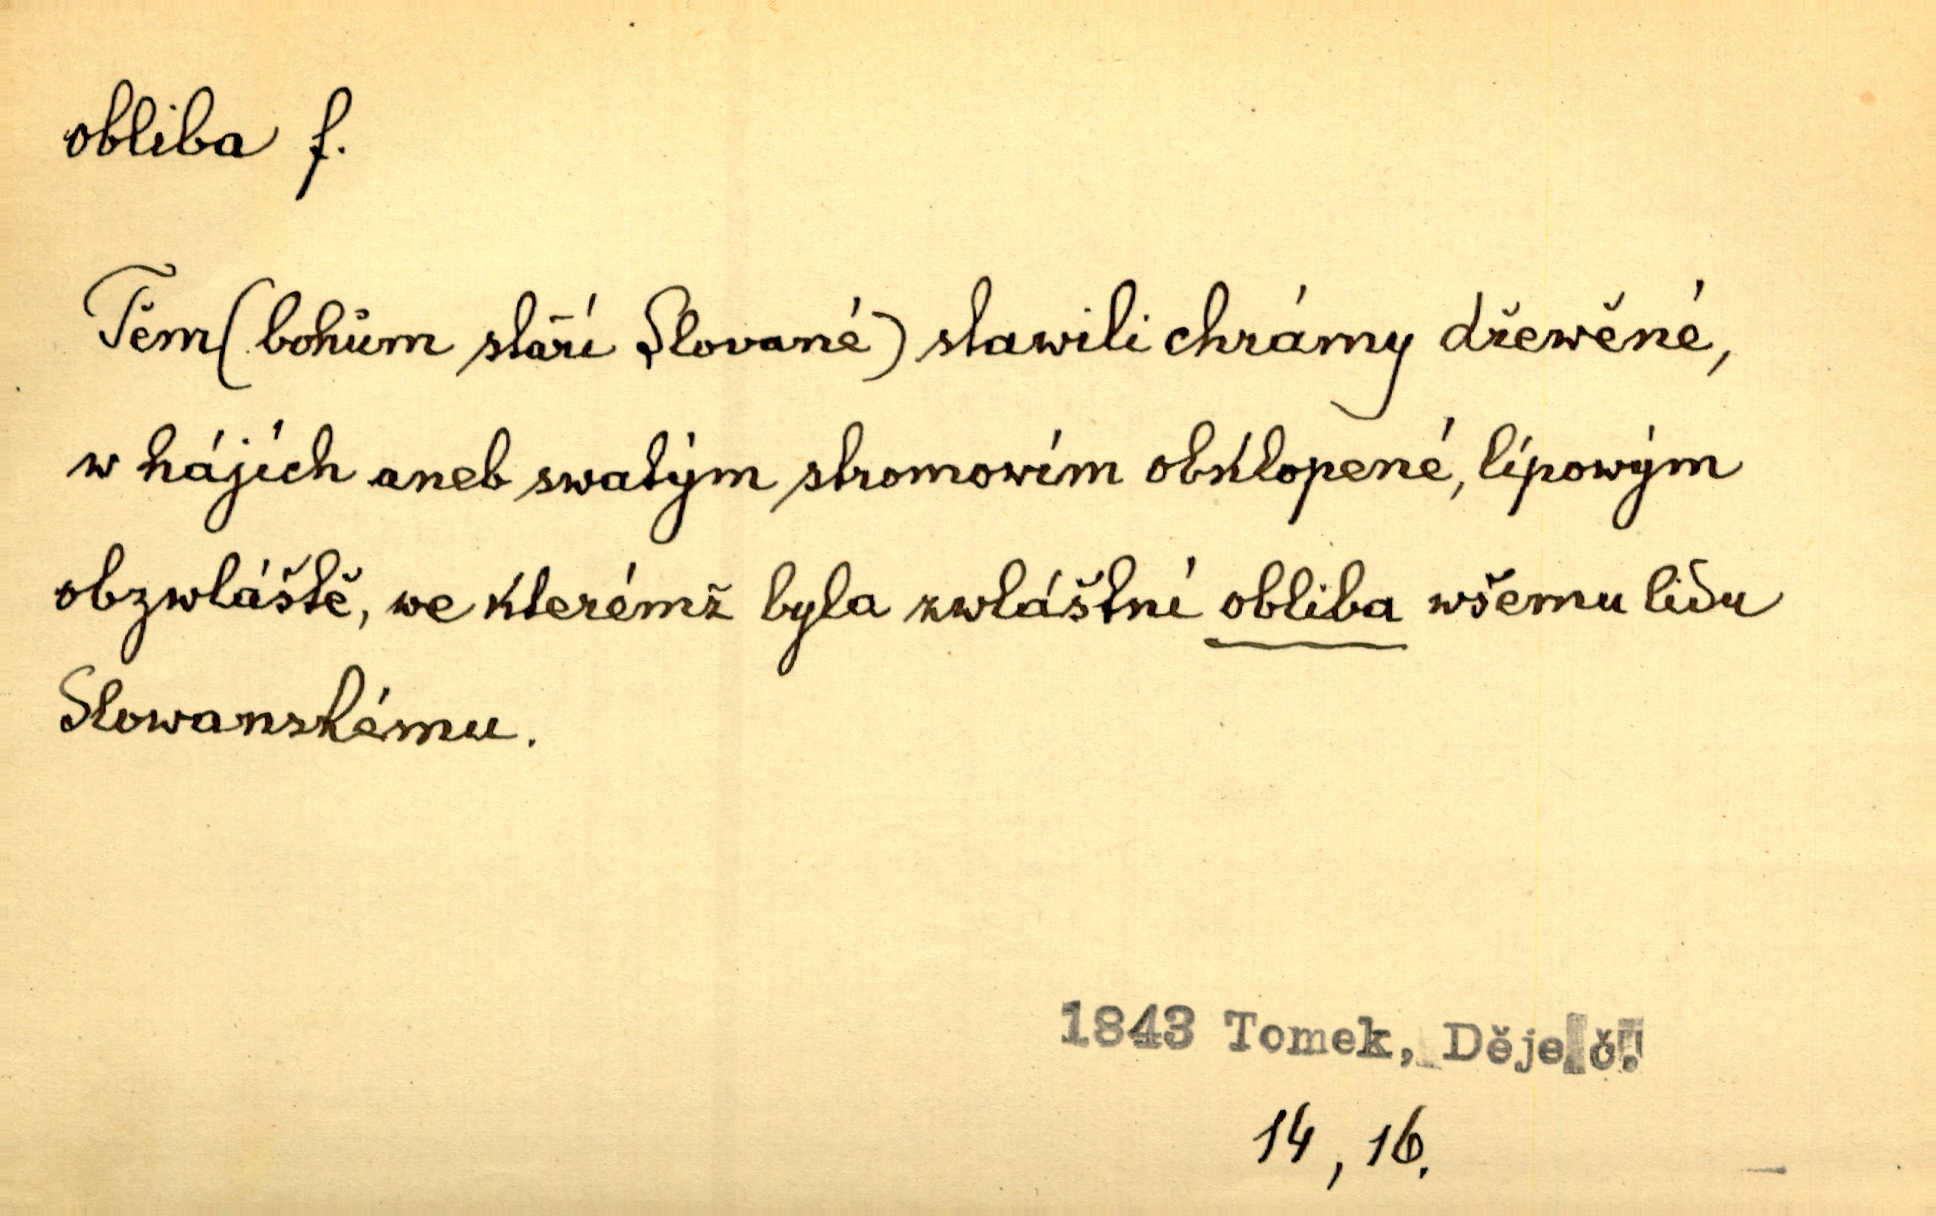 obliba f.
Těm (bohům staří Slované) stawili chrámy dřewěné,
w hájích aneb swatým stromowím obklopené, lípowým
obzwláště, we kterémž byla zwláštní obliba wšemu lidu
Slowanskému.
1843 Tomek, Děje č.
14, 16.